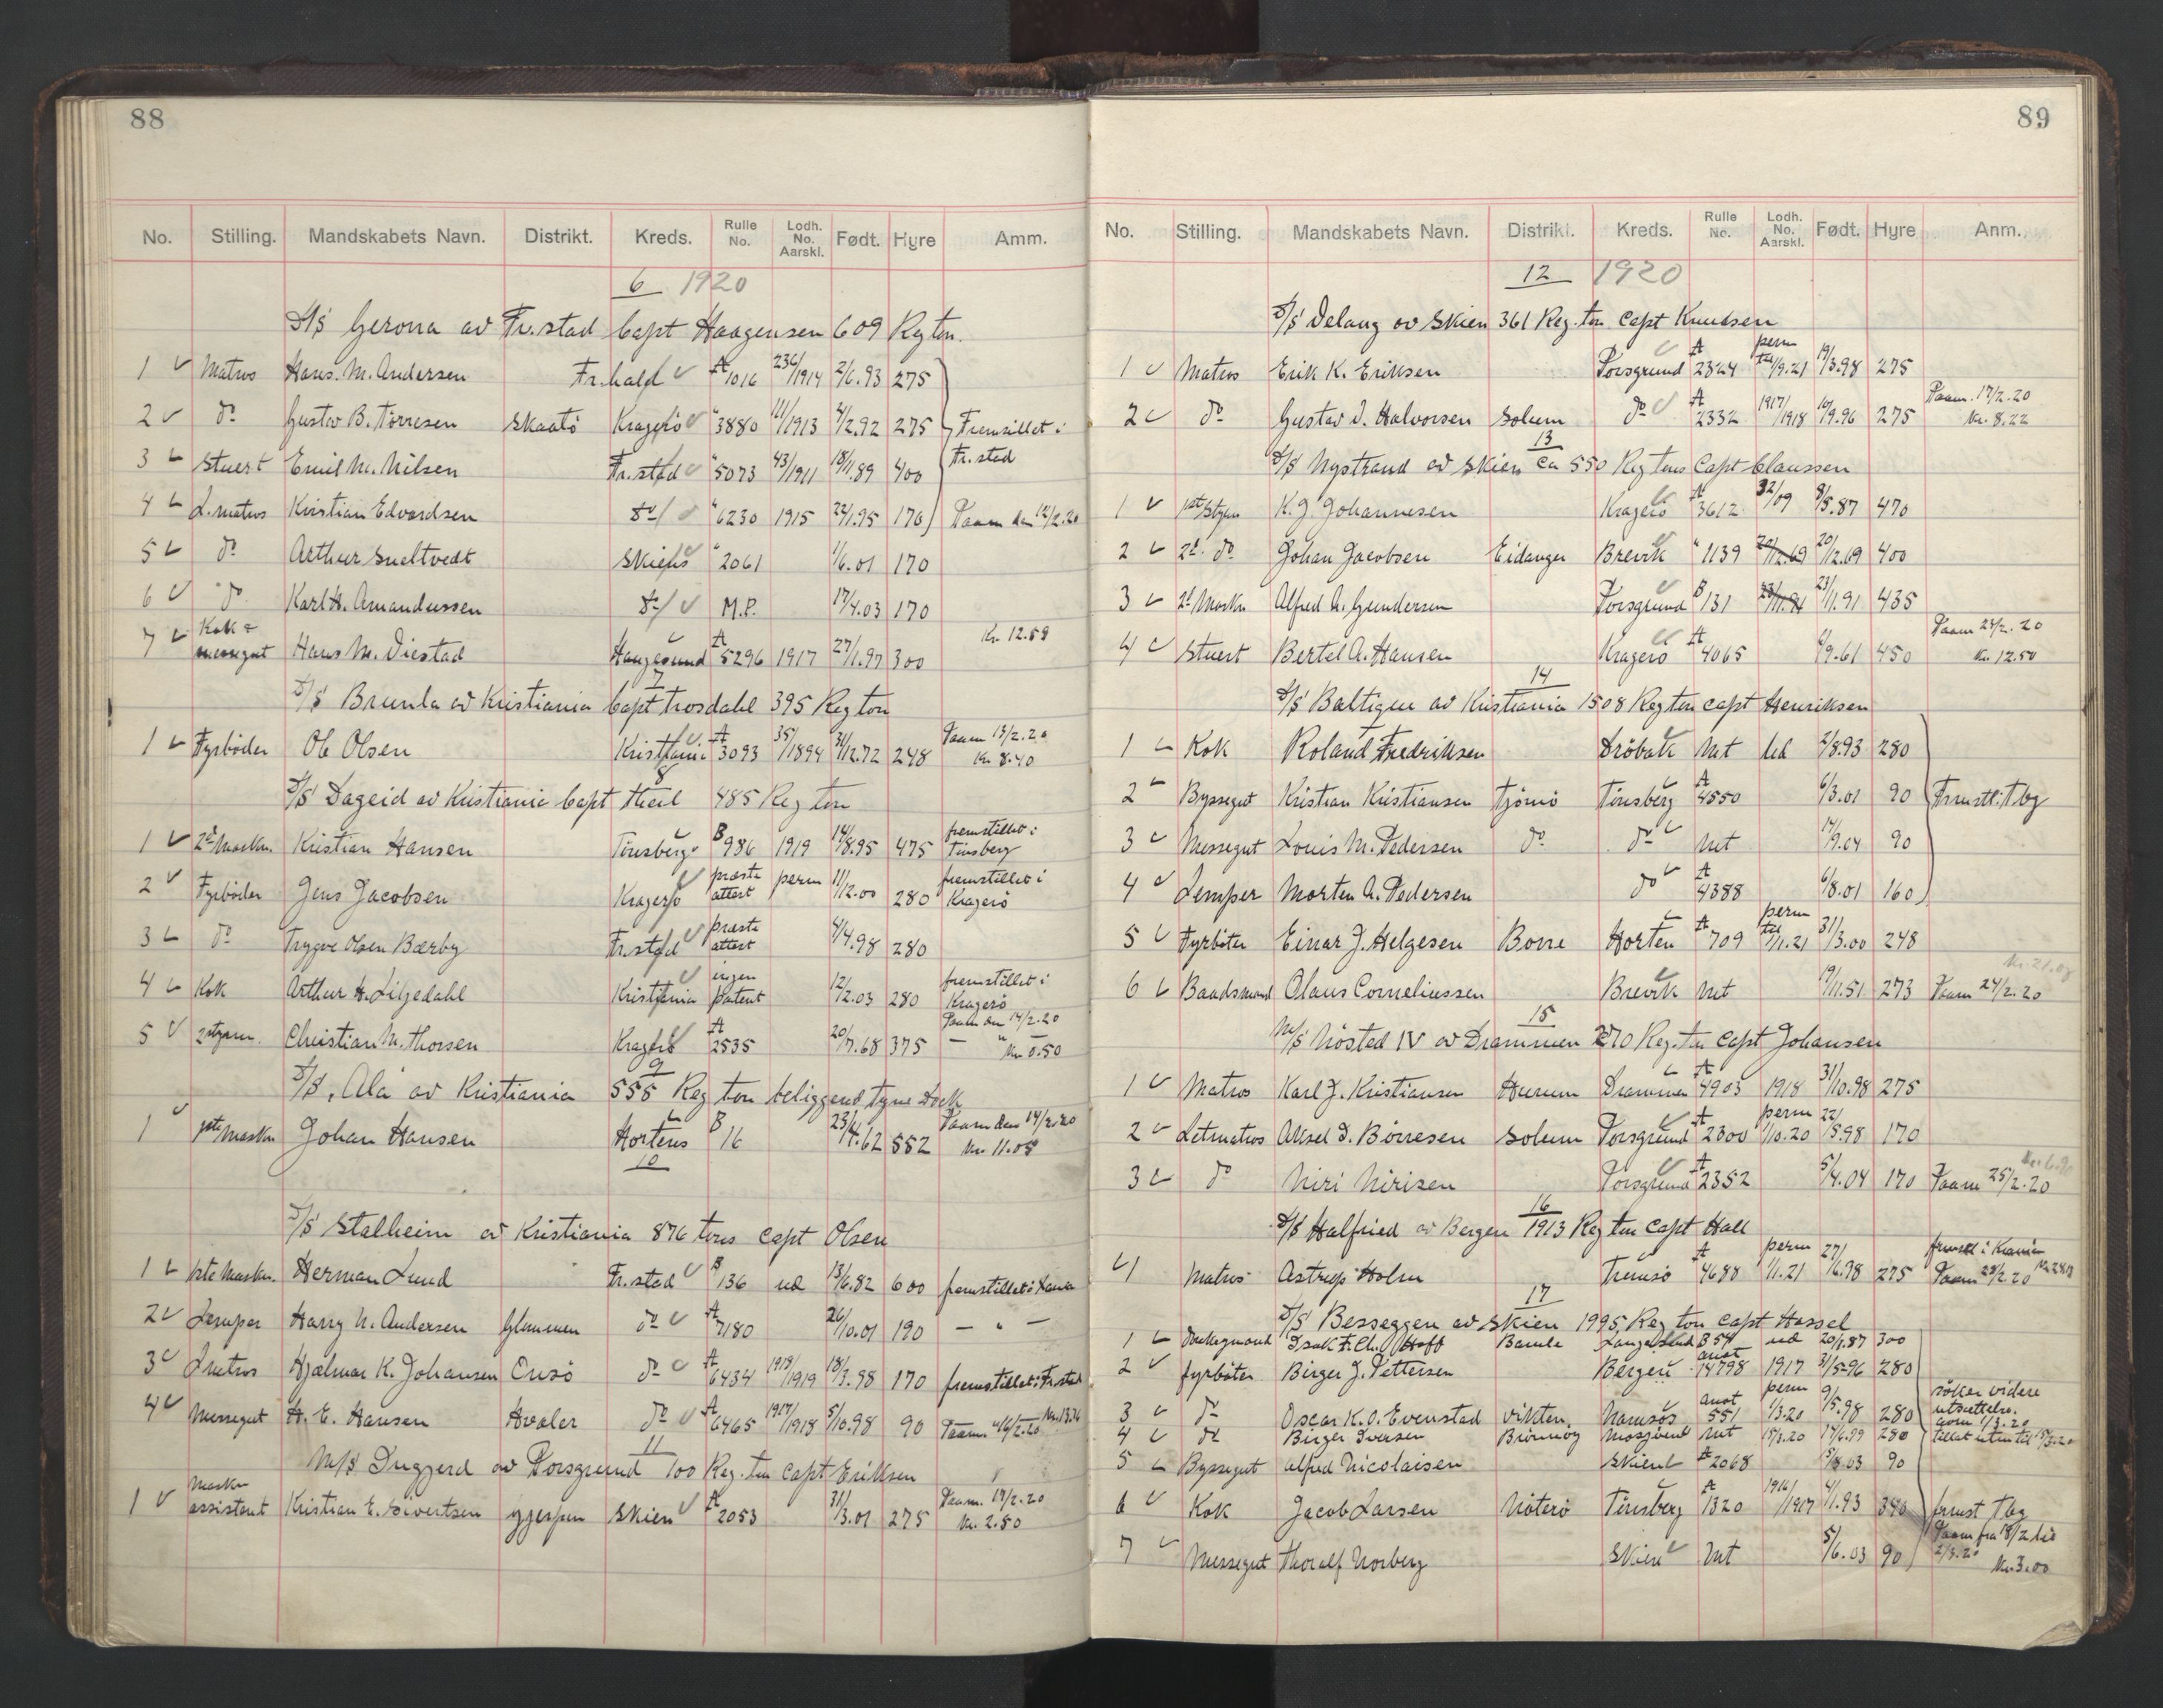 88
No. Stilling. Mandskabets Navn. Distrikt. Kreds. Rulle No. Lodh. No. Aarskl. Født. Hyre Amm.
6 1920
S/S Gerona av Fr.stad Capt Haagensen 609 Reg ton.
1 Matros Hans. M. Andersen Fr.hald A 1016 236/1914 2/6.93 275
2 do Gustav B. Tørresen Skaatö Kragerö " 3880 111/1913 4/2.92 275 Fremstillet i
3 Stuert Emil M. Nilsen Fr.stad " 5073 43/1911 18/11.89 400 Fr.stad
4 L.matros Kristian Edvardsen do " 6230 1915 24/1.95 170 Paam den 12/2.20
5 do Arthur Sneltvedt Skiens " 2061 1/6.01 170
6 do Karl H. Amandussen do M.P. 17/4.03 170
7 Kok & messegut Hans M. Diestad Haugesund A 5296 1917 27/1.97 300 Kr. 12.59
7
S/S Brunla av Kristiania Capt Trosdahl 395 Reg ton
1 Fyrböder Ole Olsen Kristiania A 3093 35/1894 31/12.72 248 Paam 13/2.20 Kr 8.40
8
S/S Dageid av Kristiania Capt Theil 485 Reg ton
1 2d Maskn. Kristian Hansen Tönsberg B 986 1919 14/8.95 475 fremstillet i Tönsberg
2 Fyrböder Jens Jacobsen Kragerö præste attest perm 11/12.00 280 fremstillet i Kragerö
3 do Trygve Olsen Bærby Fr.stad præste attest 4/4.98 280
4 Kok Arthur H. Liljedahl Kristiania ingen patent 12/2.03 280 fremstillet i Kragerö
5 2 styrm. Christian M. Thorsen Kragerö A 2535 20/7.68 375 Paam den 14/2.20 — " — Kr 0.50
9
S/S "Ala" av Kristiania 555 Reg ton beliggend Tyne Dock
1 1ste Maskn Johan Hansen Hortens B 16 23/4.62 552 Paam den 14/2.20 Kr. 11.05
10
S/S Stalheim av Kristiania 876 tons Capt Olsen
1 1ste Maskn. Herman Lund Fr.stad B 136 ud 13/6.82 600 fremstillet i
2 Lemper Harry N. Andersen Glemmen do A 7180 26/10.01 190 — " —
3 Lmatros Hjalmar K. Johansen Onsö do A 6434 1918/1919 18/3.98 170 fremstillet i Fr.stad
4 Messegut H. E. Hansen Hvaler do A 6465 1917/1918 5/10.98 90 Paam 16/2.20 Kr. 13.36
11
M/S Inggjerd av Porsgrund 100 Reg. ton Capt Eriksen
1 Maskn assistant Kristian E. Sivertsen Gjerpen Skien A 2053 31/3.01 275 Paam. 19/2.20 Kr. 2.50
89
No. Stilling. Mandskabets Navn. Distrikt. Kreds. Rulle No. Lodh. No. Aarskl. Født. Hyre Anm.
12 1920
S/S Delaug av Skien 361 Reg. ton Capt Knudsen
1 Matros Erik K. Eriksen Porsgrund A 2324 perm til 1/9.21 19/3.98 275
2 do Gustav I. Halvorsen Solum do A 2332 1917/1918 10/9.96 275 Paam. 17/2.20 Kr. 8.22
13
S/S Nystrand av Skien ca 550 Reg tons Capt Claussen
1 1st Styrm K. J. Johannesen Kragerö A 3612 32/09 8/5.87 470
2 2d do Johan Jacobsen Eidanger Brevik " 1139 20/12.69 20/12.69 400
3 2d Maskn Alfred A. Gundersen Porsgrund B 131 23/11.91 23/11.91 435
4 Stuert Bertel A. Hansen Kragerö A 4065 6/9.61 450 Paam 23/2.20 Kr. 12.50
14
S/S Baltique av Kristiania 1508 Reg ton Capt Henriksen
1 Kok Roland Fredriksen Dröbak Mt ud 2/8.93 280
2 Byssegut Kristian Kristiansen Tjömö Tönsberg A 4550 6/3.01 90 Fremstl. i Tbg
3 Messegut Louis M. Pedersen do do Mt 17/9.04 90
4 Lemper Morten A. Pedersen do A 4388 6/8.01 160
5 Fyrböter Einar J. Helgesen Borre Horten A 709 perm til 1/11.21 31/3.00 248
6 Baadsmand Olaus Corneliussen Brevik Mt 19/11.51 273 Paam 24/2.20
15
M/S Nösted IV av Drammen 270 Reg. ton Capt Johansen
1 Matros Karl J. Kristiansen Hurum Drammen A 4903 1918 31/10.98 275
2 Letmatros Aksel D. Börresen Solum Porsgrund A 2300 perm 1/10.20 22/5.98 170
3 do Niri Nirisen Porsgrund A 2352 5/4.04 170 Paam 25/2.20
16
S/S Halfried av Bergen 1913 Reg ton Capt Hall
1 Matros Astrup Holm Tromsö A 4688 perm 1/1.21 27/6.98 275 Paam 28/2.20
17
S/S Besseggen av Skien 1995 Reg ton Capt Hassel
1 Donkeymand Isak F. Chr. Hoff Bamle Langesund B 54 ud 20/1.87 300
2 fyrböter Birger J. Pettersen Bergen anot 14798 1917 31/5-96 280
3 do Oscar K. O. Evenstad Vikten. Namsös anot 551 perm 1/3.20 9/5.98 280 söker videre utsættelse.
4 do Birger Iversen Brönnöy Mosjöen Mt 15/3.20 17/6.99 280
5 Byssegut Alfred Nicolaisen Skien A 2068 5/8.03 90
6 Kok Jacob Larsen Nöterö Tönsberg A 1320 1916/1917 4/1.93 390 fremst Tbg
7 Messegut Thoralf Norberg Skien Mt 5/6.03 90 Paam fra 18/2 til 2/3.20 Kr. 3.00